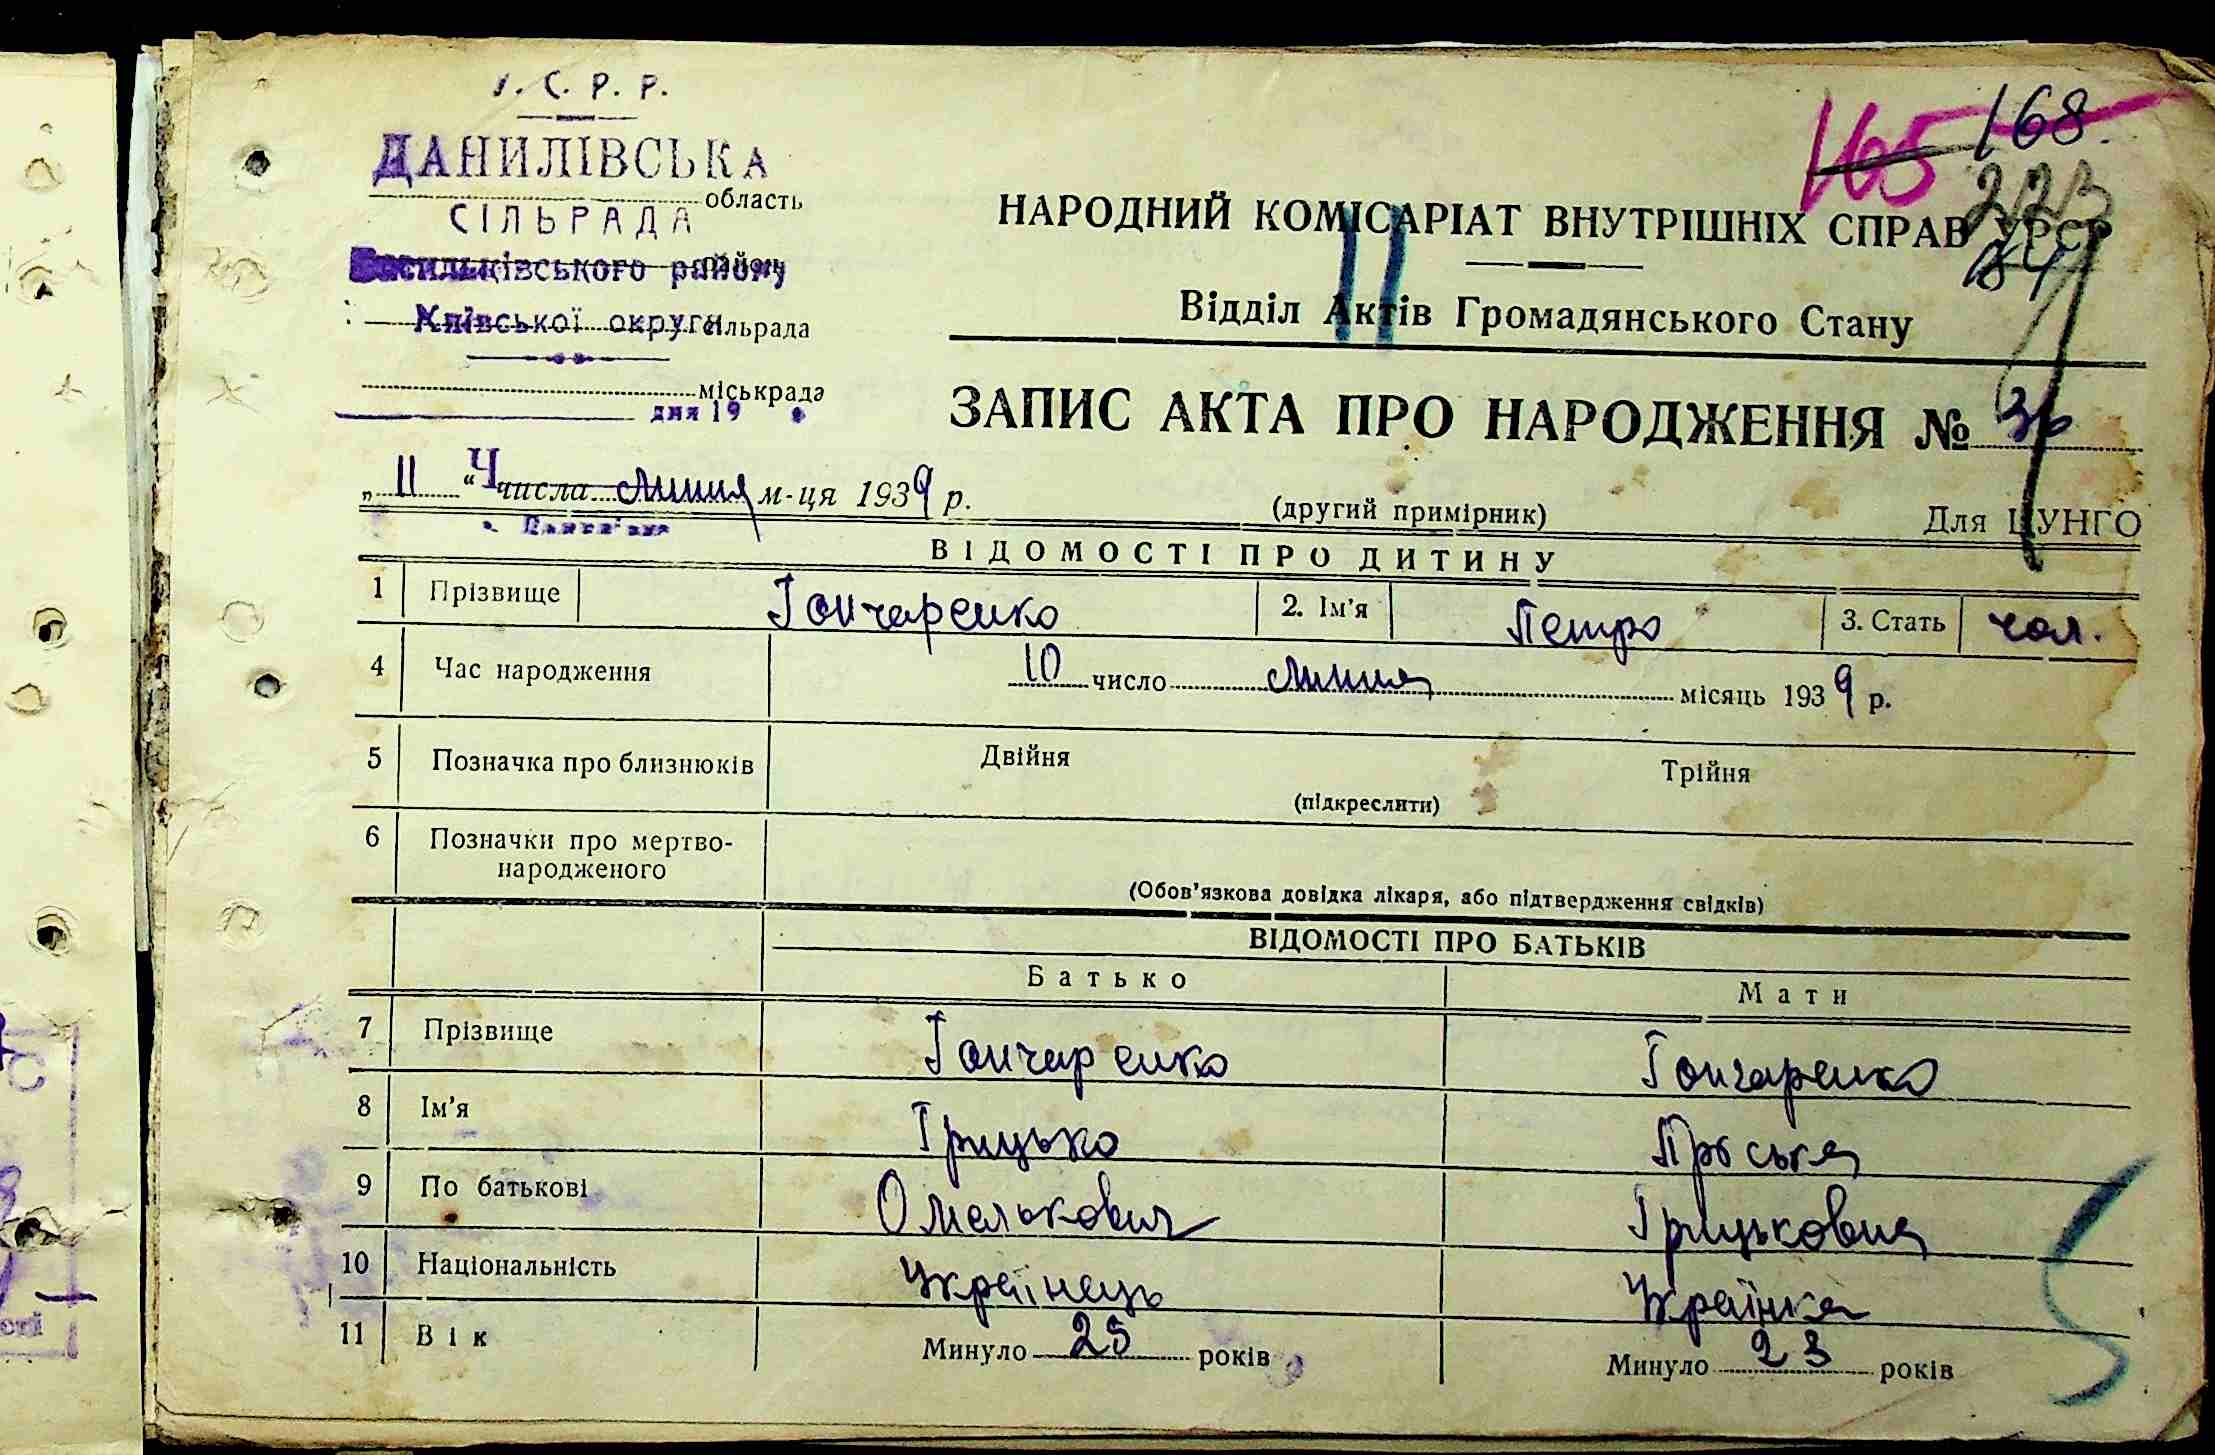 У. С. Р. Р.
ДАНИЛІВСЬКА
область
СІЛЬРАДА
Васильківського району
Київської округи
сільрада
міськрада
дня 19
168.
165
223
184
НАРОДНИЙ КОМІСАРІАТ ВНУТРІШНІХ СПРАВ УРСР
Відділ Актів Громадянського Стану
ЗАПИС АКТА ПРО НАРОДЖЕННЯ № 36
„ 11 “ Ч числа липня м-ця 1939 р.
(другий примірник)
Для ЦУНГО
ВІДОМОСТІ ПРО ДИТИНУ
1 Прізвище Гончаренко 2. Ім’я Петро 3. Стать чол.
4 Час народження 10 число липня місяць 1939 р.
5 Позначка про близнюків Двійня Трійня
(підкреслити)
6 Позначки про мертво-
народженого
(Обов’язкова довідка лікаря, або підтвердження свідків)
ВІДОМОСТІ ПРО БАТЬКІВ
Батько Мати
7 Прізвище Гончаренко Гончаренко
8 Ім’я Грицько Пріська
9 По батькові Омелькович Грицьковна
10 Національність Українець Українка
11 Вік Минуло 25 років Минуло 23 років